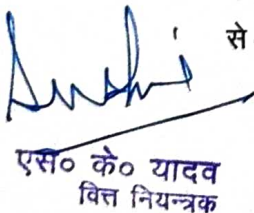 से
एस० के० यादव
वित्त नियन्त्रक